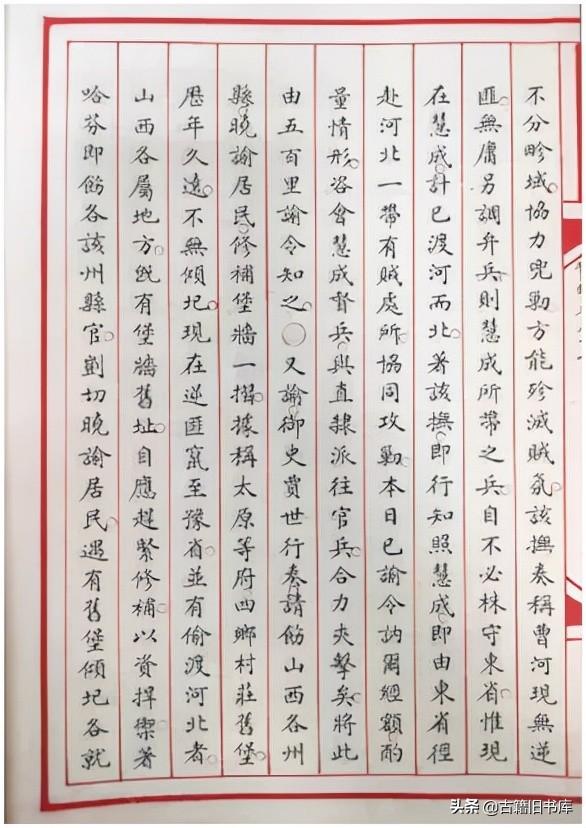 不分畛域。協力兜勦方能殄滅賊氛。該撫奏稱曹河現無逆
匪。無庸另調弁兵則慧成所帶之兵。自不必株守東省。惟現
在慧成。計已渡河而北。著該撫。即行知照慧成。即由東省徑
赴河北一帶有賊處所。協同攻勦。本日已諭令訥爾經額。酌
量情形。咨會慧成督兵。與直隸派往官兵。合力夾擊矣。將此
由五百里諭令知之。○又諭。御史賈世行奏請飭山西各州
縣。曉諭居民。修補堡牆一摺。據稱太原等府。四鄉村莊舊堡。
歷年久遠。不無傾圮。現在逆匪竄至豫省。並有偷渡河北者。
山西各屬地方。旣有堡牆舊址。自應趕緊修補。以資捍禦。著
哈芬即飭各該州縣官。剴切曉諭居民。遇有舊堡傾圮各就
头条 @古籍旧书库